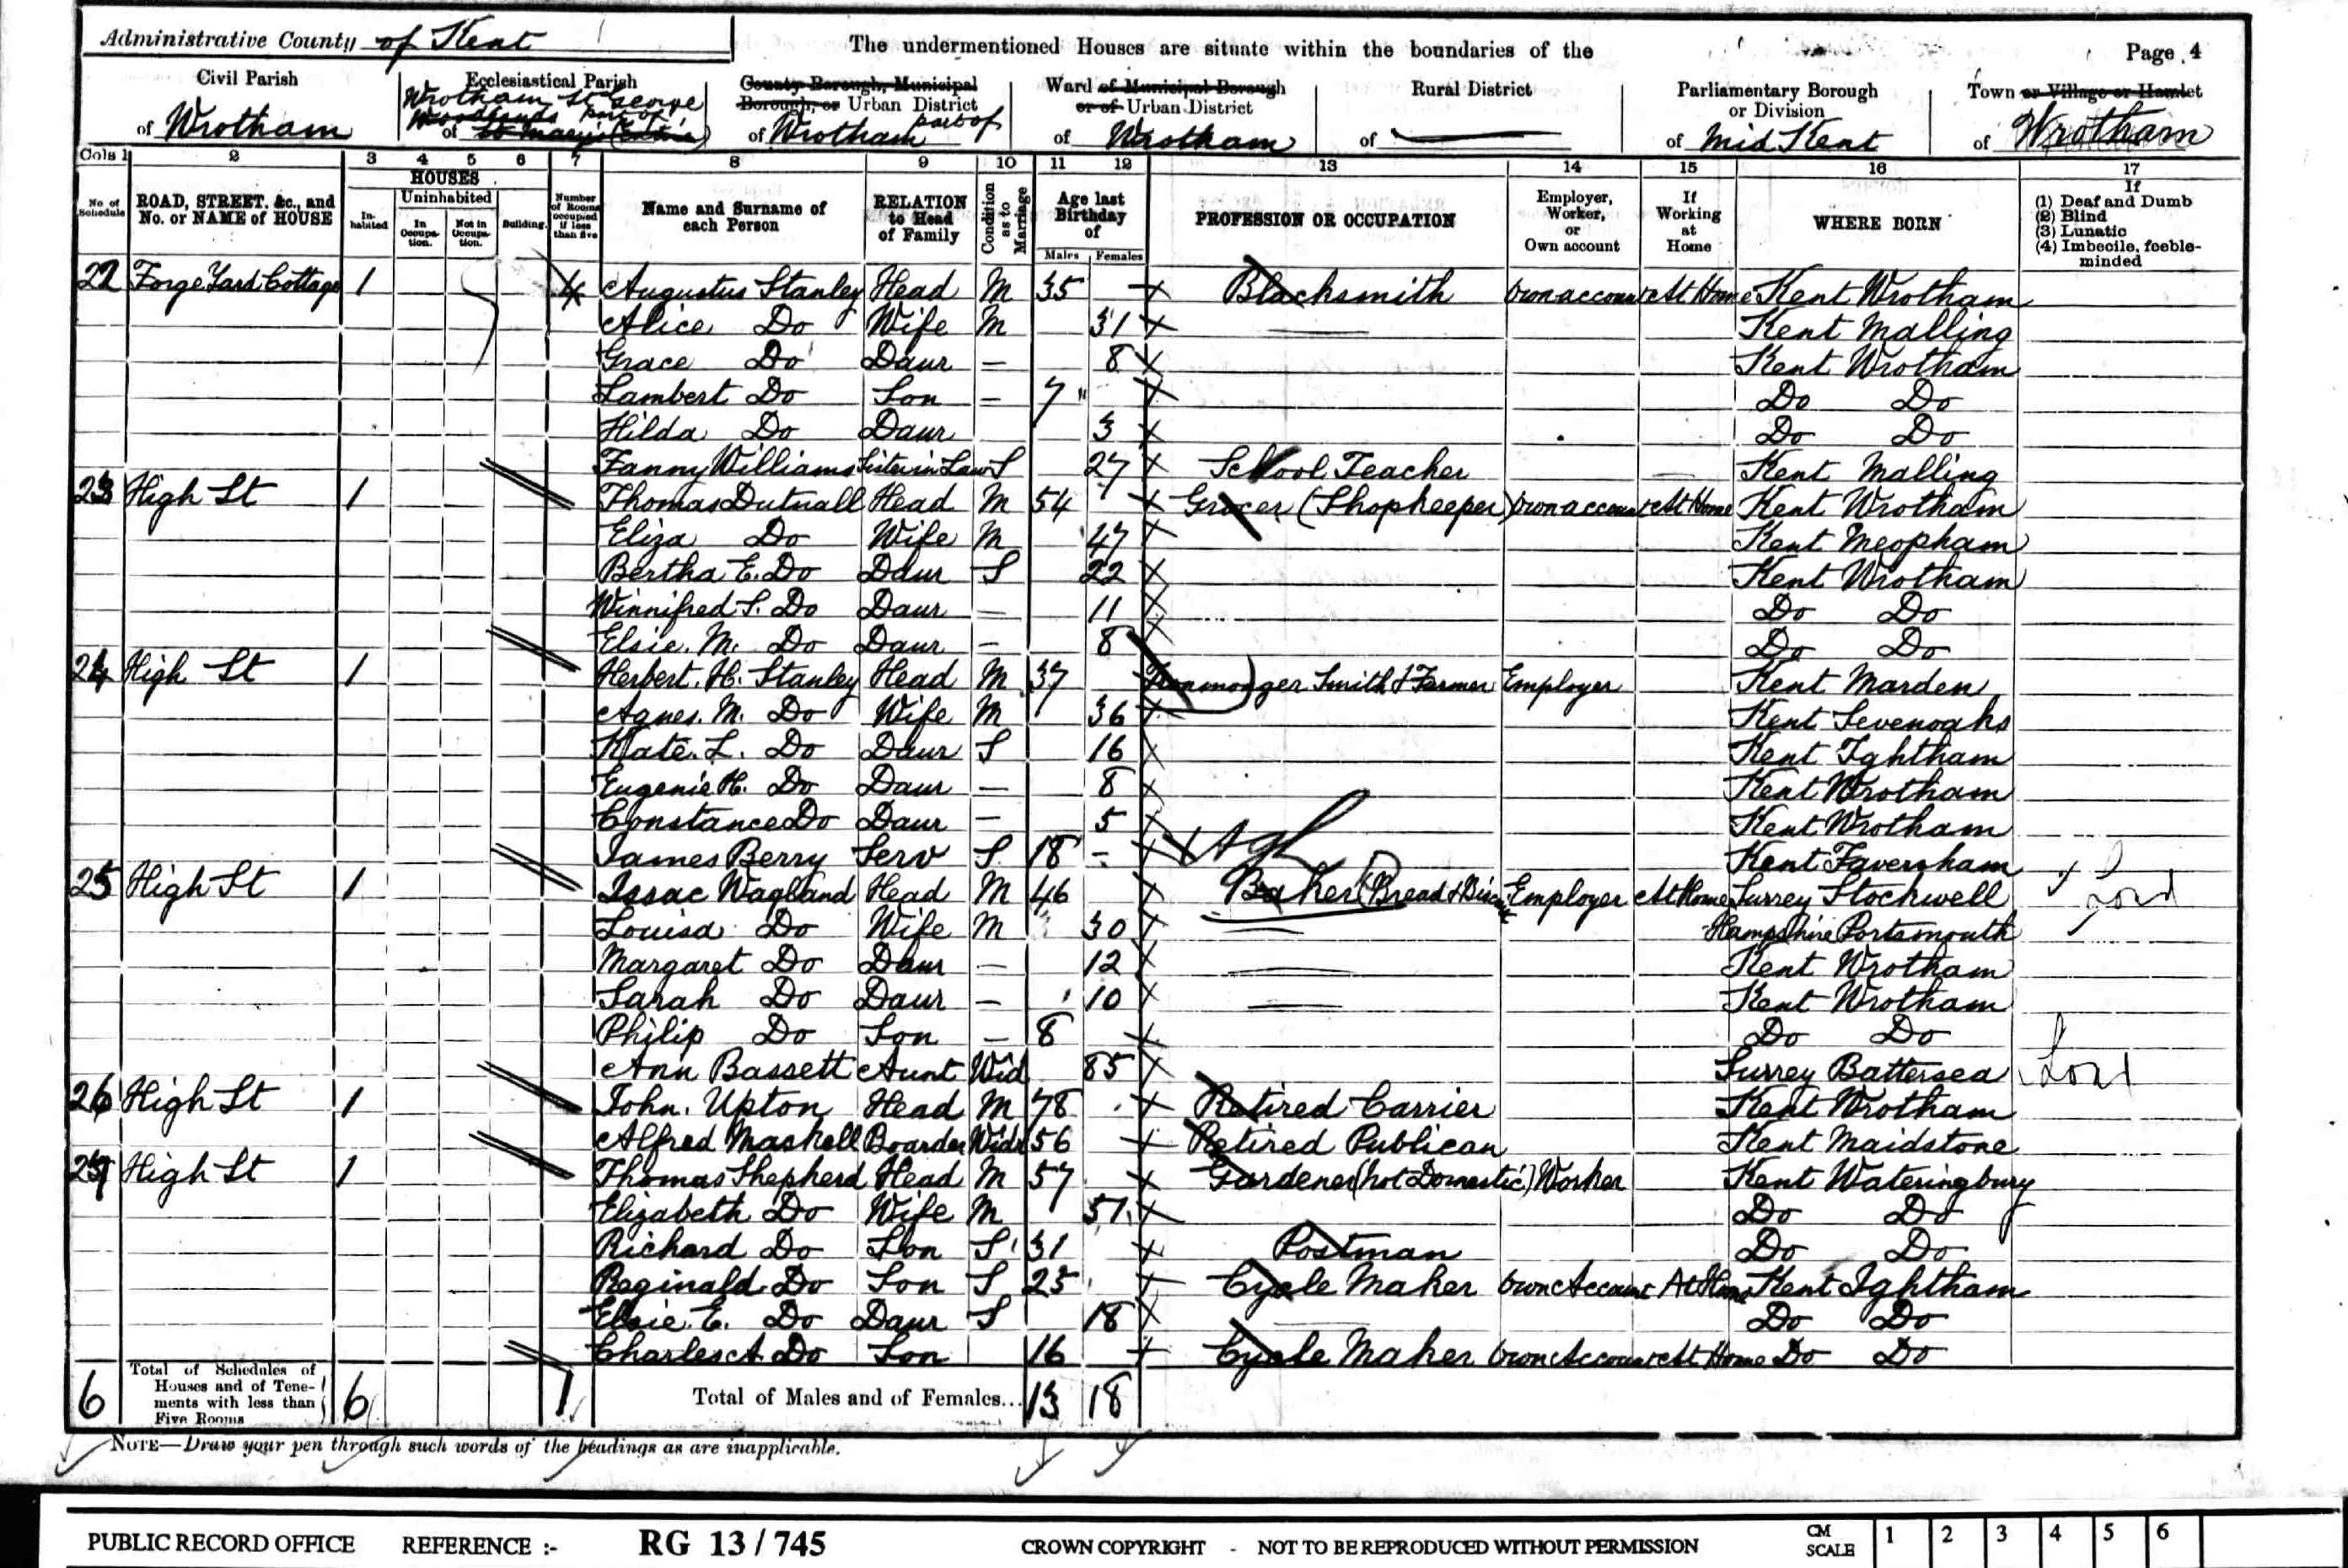 Administrative County of Kent
The undermentioned Houses are situate within the boundaries of the
Page 4
Civil Parish of Wrotham
Ecclesiastical Parish of Wrotham St George part of Woodlands
County Borough, Municipal Borough, or Urban District of Wrotham part of
Ward of Municipal Borough or of Urban District of Wrotham
Rural District of
Parliamentary Borough or Division of Mid Kent
Town or Village or Hamlet of Wrotham
Cols 1 2 3 4 5 6 7 8 9 10 11 12 13 14 15 16 17
No. of Schedule
ROAD, STREET, &c., and No. or NAME of HOUSE
HOUSES
Inhabited
Uninhabited
In Occupation.
Not in Occupation.
Building.
Number of Rooms occupied if less than five
Name and Surname of each Person
RELATION to Head of Family
Condition as to Marriage
Age last Birthday of
Males Females
PROFESSION OR OCCUPATION
Employer, Worker, or Own account
If Working at Home
WHERE BORN
If
(1) Deaf and Dumb
(2) Blind
(3) Lunatic
(4) Imbecile, feeble-minded
22 Forge Yard Cottage 1 4 Augustus Stanley Head M 35 Blacksmith Own account At Home Kent Wrotham
Alice Do Wife M 31 Kent Malling
Grace Do Daur — 8 Kent Wrotham
Lambert Do Son — 7 Do Do
Hilda Do Daur 3 Do Do
Fanny Williams Sister in Law S 27 School Teacher Kent Malling
23 High St 1 Thomas Dutnall Head M 54 Grocer (Shopkeeper) Own account At Home Kent Wrotham
Eliza Do Wife M 47 Kent Meopham
Bertha E. Do Daur S 22 Kent Wrotham
Winnifred S. Do Daur — 11 Do Do
Elsie. M. Do Daur — 8 Do Do
24 High St 1 Herbert. H. Stanley Head M 37 Ironmonger Smith & Farmer Employer Kent Marden
Agnes. M. Do Wife M 36 Kent Sevenoaks
Kate. L. Do Daur S 16 Kent Ightham
Eugenie H. Do Daur — 8 Kent Wrotham
Constance Do Daur — 5 Kent Wrotham
James Berry Serv S 18 – Kent Faversham
25 High St 1 Issac Wagland Head M 46 Baker (Bread & Employer At Home Surrey Stockwell
Louisa Do Wife M 30 Hampshire Portsmouth
Margaret Do Daur — 12 Kent Wrotham
Sarah Do Daur — 10 Kent Wrotham
Philip Do Son — 8 Do Do
Ann Bassett Aunt Wid 85 Surrey Battersea Lond
26 High St 1 John. Upton Head M 78 Retired Carrier Kent Wrotham
Alfred Maskell Boarder Widr 56 Retired Publican Kent Maidstone
27 High St 1 Thomas Shepherd Head M 57 Gardener (not Domestic) Worker Kent Wateringbury
Elizabeth Do Wife M 57 Do Do
Richard Do Son S 31 Postman Do Do
Reginald Do Son S 25 Cycle Maker Own Account At Home Kent Ightham
Elsie. E. Do Daur S 18 Do Do
Charles A Do Son 16 Cycle Maker Own Account At Home Do Do
6 Total of Schedules of Houses and of Tenements with less than Five Rooms 6 1 Total of Males and of Females... 13 18
NOTE—Draw your pen through such words of the headings as are inapplicable.
PUBLIC RECORD OFFICE REFERENCE :- RG 13/745 CROWN COPYRIGHT - NOT TO BE REPRODUCED WITHOUT PERMISSION CM SCALE 1 2 3 4 5 6